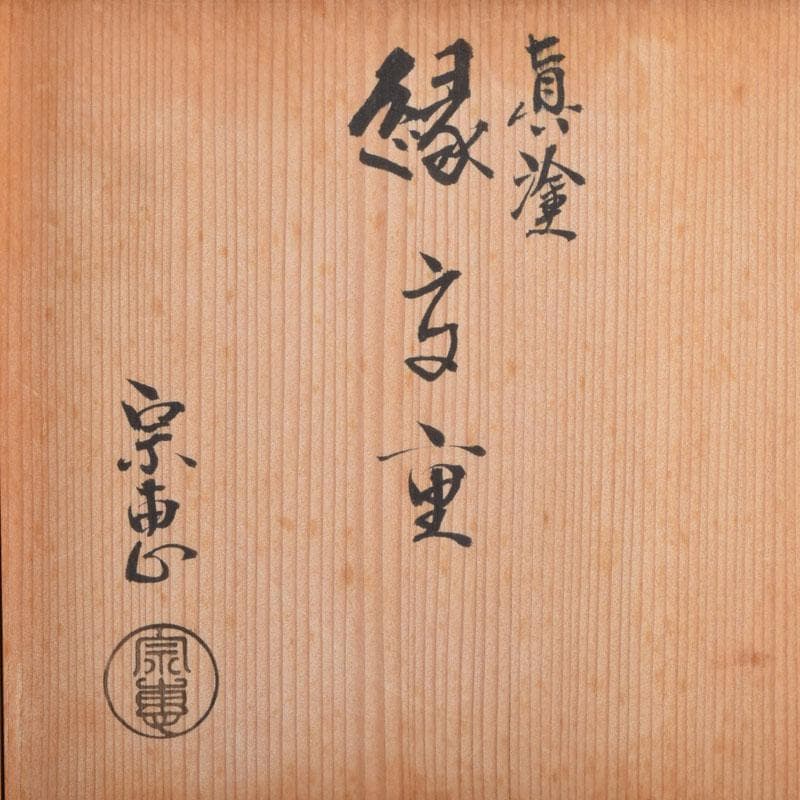 眞塗
縁高重
宗恵
宗恵